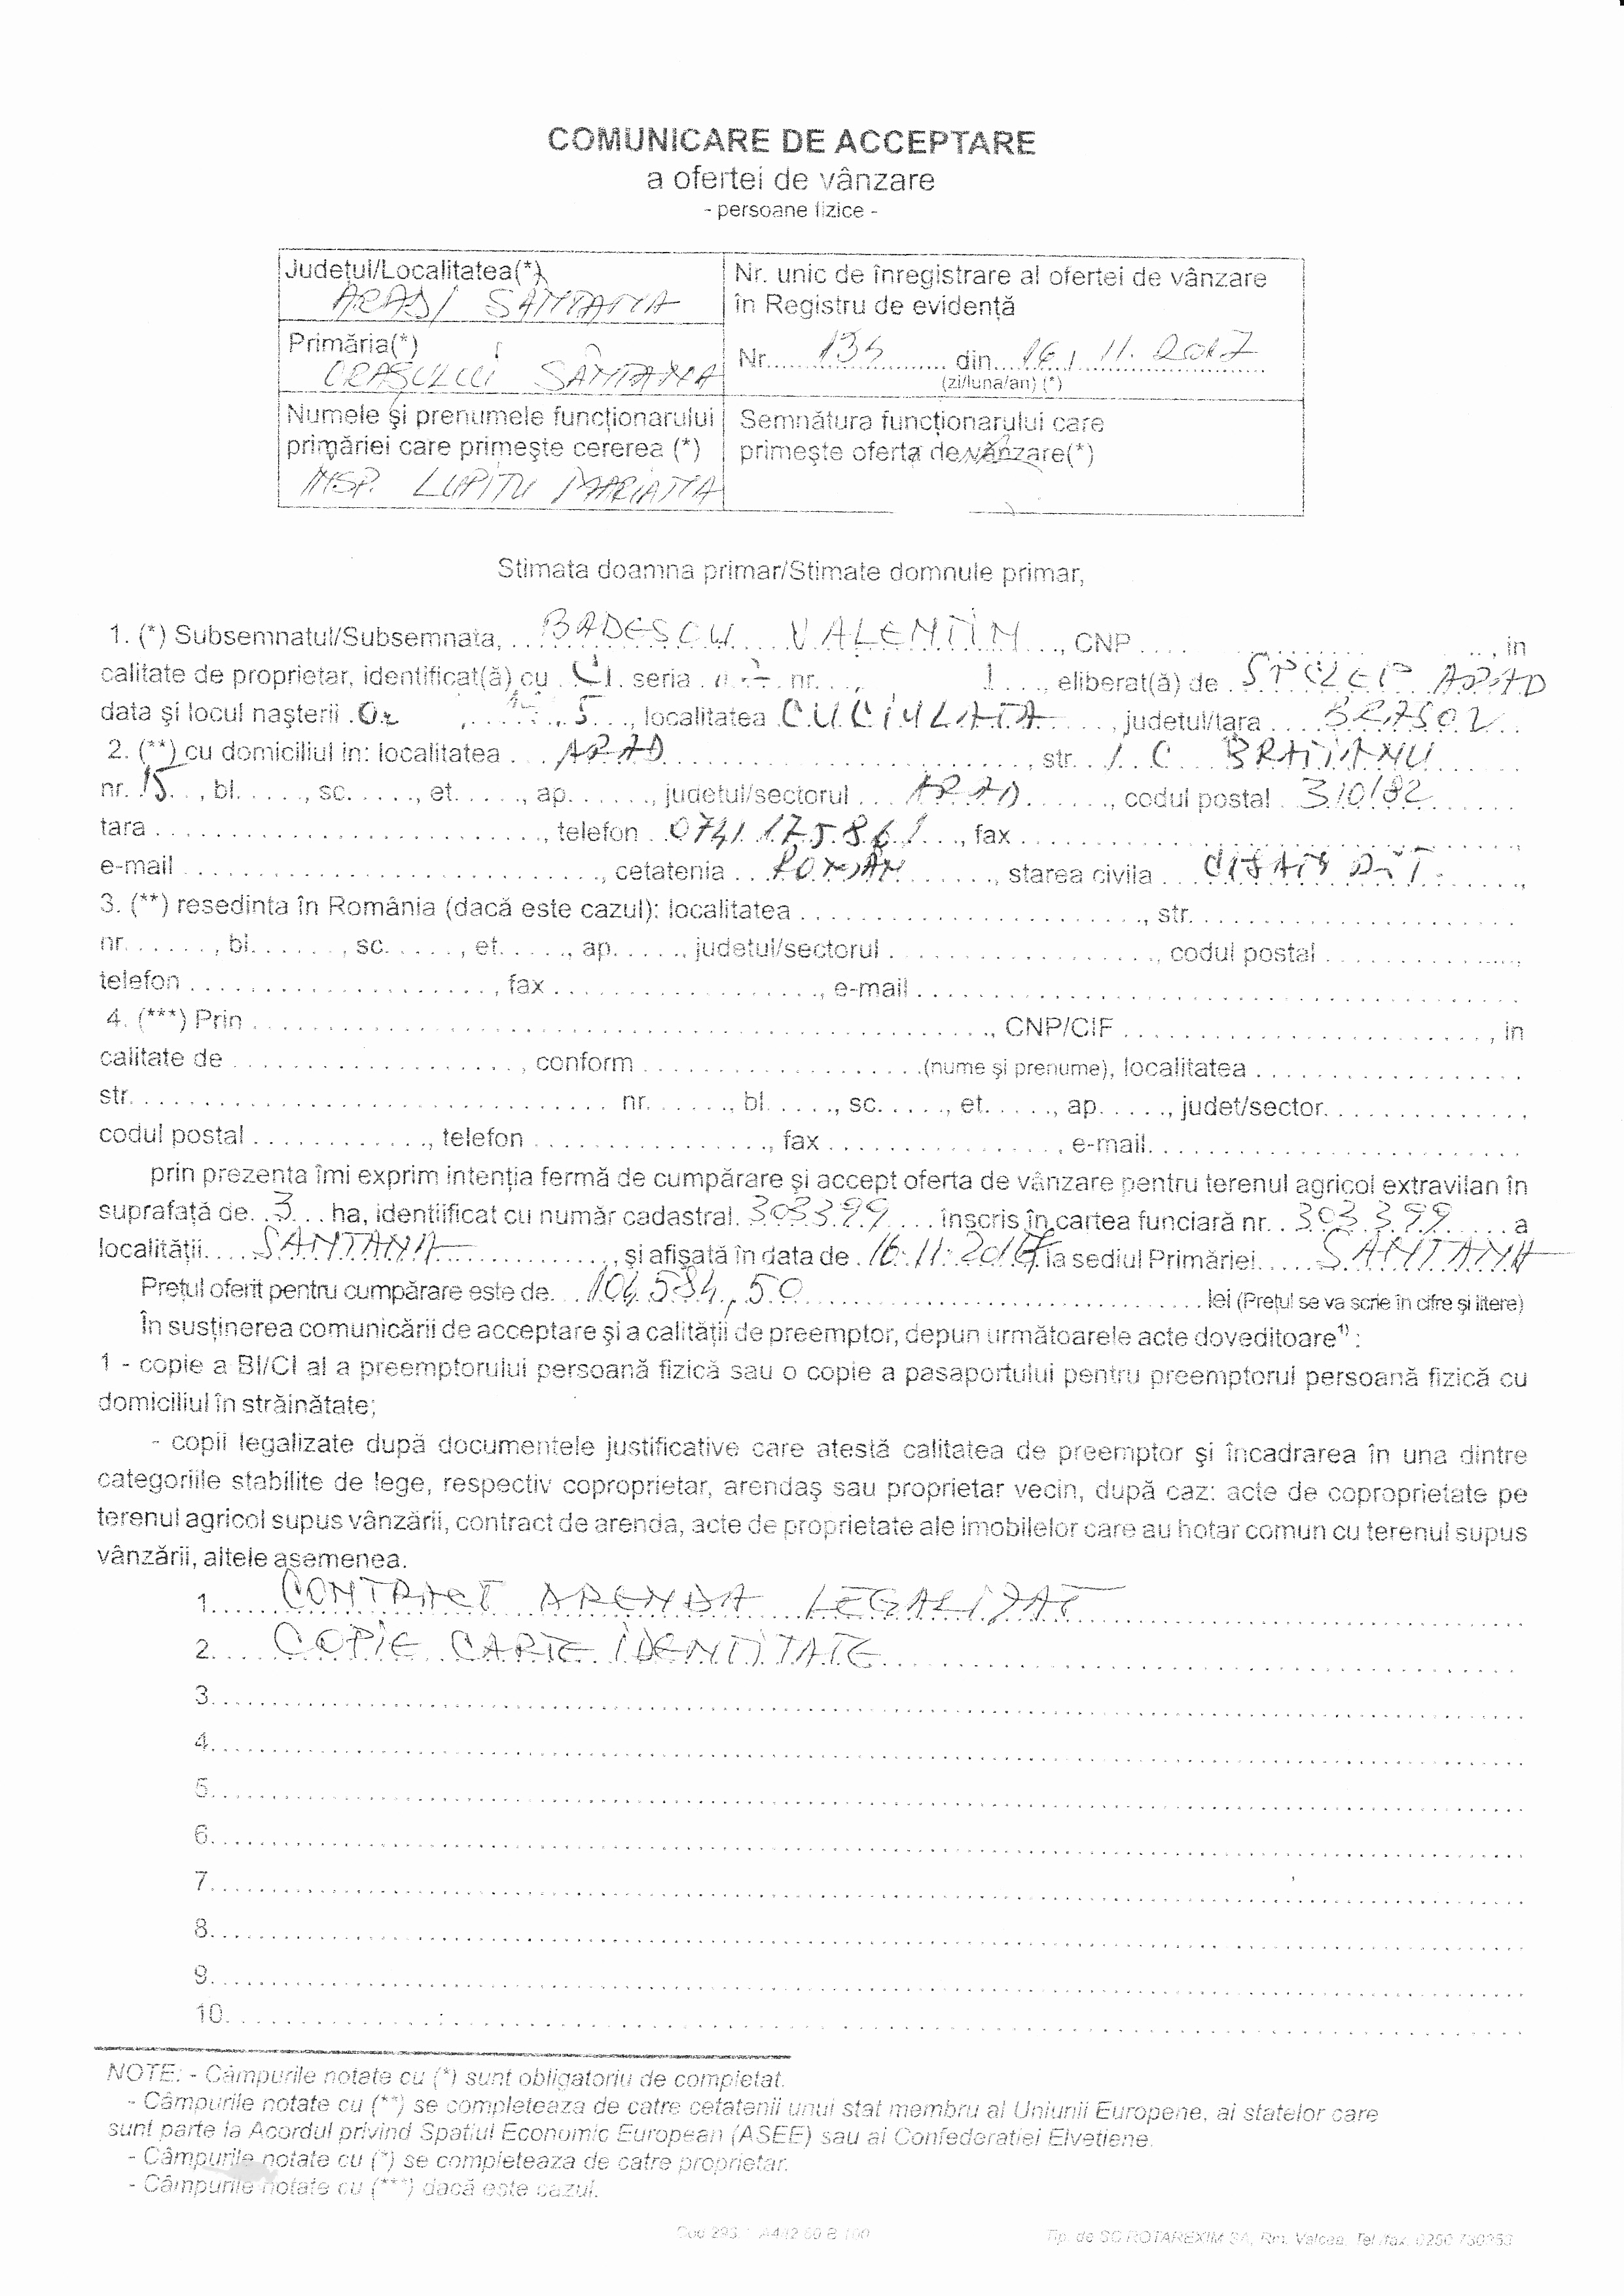 COMUNICARE DE ACCEPTARE
a ofertei de vânzare
- persoane fizice -
Județul/Localitatea(*)
ARAD/ SANTANA
Nr. unic de înregistrare al ofertei de vânzare
în Registru de evidență
Primăria(*)
ORAȘULUI SÂNTANA
Nr. 135 din 16, 11. 2017
(zi/luna/an) (*)
Numele și prenumele funcționarului
primăriei care primește cererea (*)
INSP. LUPITU MARIANA
Semnătura funcționarului care
primește oferta de vânzare(*)
Stimata doamna primar/Stimate domnule primar,
1. (*) Subsemnatul/Subsemnata, BADESCU VALENTIN, CNP , in
calitate de proprietar, identificat(ă) cu CI seria nr. , eliberat(ă) de SPCLEP ARAD
data și locul nașterii , localitatea CUCIULATA, judetul/tara BRASOV
2. (**) cu domiciliul in: localitatea ARAD, str. I. C. BRATIANU
nr. 15, bl. , sc. , et. , ap. , judetul/sectorul ARAD, codul postal 310182
tara , telefon 0741.175.861, fax ,
e-mail , cetatenia ROMAN, starea civila ,
3. (**) resedinta în România (dacă este cazul): localitatea , str.
nr. , bl. , sc. , et. , ap. , judetul/sectorul , codul postal ,
telefon , fax , e-mail
4. (***) Prin , CNP/CIF , in
calitate de , conform (nume și prenume), localitatea
str. nr. , bl. , sc. , et. , ap. , judet/sector ,
codul postal , telefon , fax , e-mail
prin prezenta îmi exprim intenția fermă de cumpărare și accept oferta de vânzare pentru terenul agricol extravilan în
suprafață de 3 ha, identificat cu număr cadastral 303399 înscris în cartea funciară nr. 303399 a
localității SANTANA, și afișată în data de 16.11.2017 la sediul Primăriei SANTANA
Prețul oferit pentru cumpărare este de 104.584,50 lei (Prețul se va scrie în cifre și litere)
În susținerea comunicării de acceptare și a calității de preemptor, depun următoarele acte doveditoare¹⁾ :
1 - copie a BI/CI al a preemptorului persoană fizică sau o copie a pasaportului pentru preemptorul persoană fizică cu
domiciliul în străinătate;
- copii legalizate după documentele justificative care atestă calitatea de preemptor și încadrarea în una dintre
categoriile stabilite de lege, respectiv coproprietar, arendaș sau proprietar vecin, după caz: acte de coproprietate pe
terenul agricol supus vânzării, contract de arenda, acte de proprietate ale imobilelor care au hotar comun cu terenul supus
vânzării, altele asemenea.
1. CONTRACT ARENDA LEGALIZAT
2. COPIE CARTE IDENTITATE
3.
4.
5.
6.
7.
8.
9.
10.
NOTE: - Câmpurile notate cu (*) sunt obligatoriu de completat.
- Câmpurile notate cu (**) se completeaza de catre cetatenii unui stat membru al Uniunii Europene, ai statelor care
sunt parte la Acordul privind Spatiul Economic European (ASEE) sau ai Confederatiei Elvetiene.
- Câmpurile notate cu (*) se completeaza de catre proprietar.
- Câmpurile notate cu (***) dacă este cazul.
Tip. de SC ROTAREXIM SA, Rm. Valcea, Tel./fax.